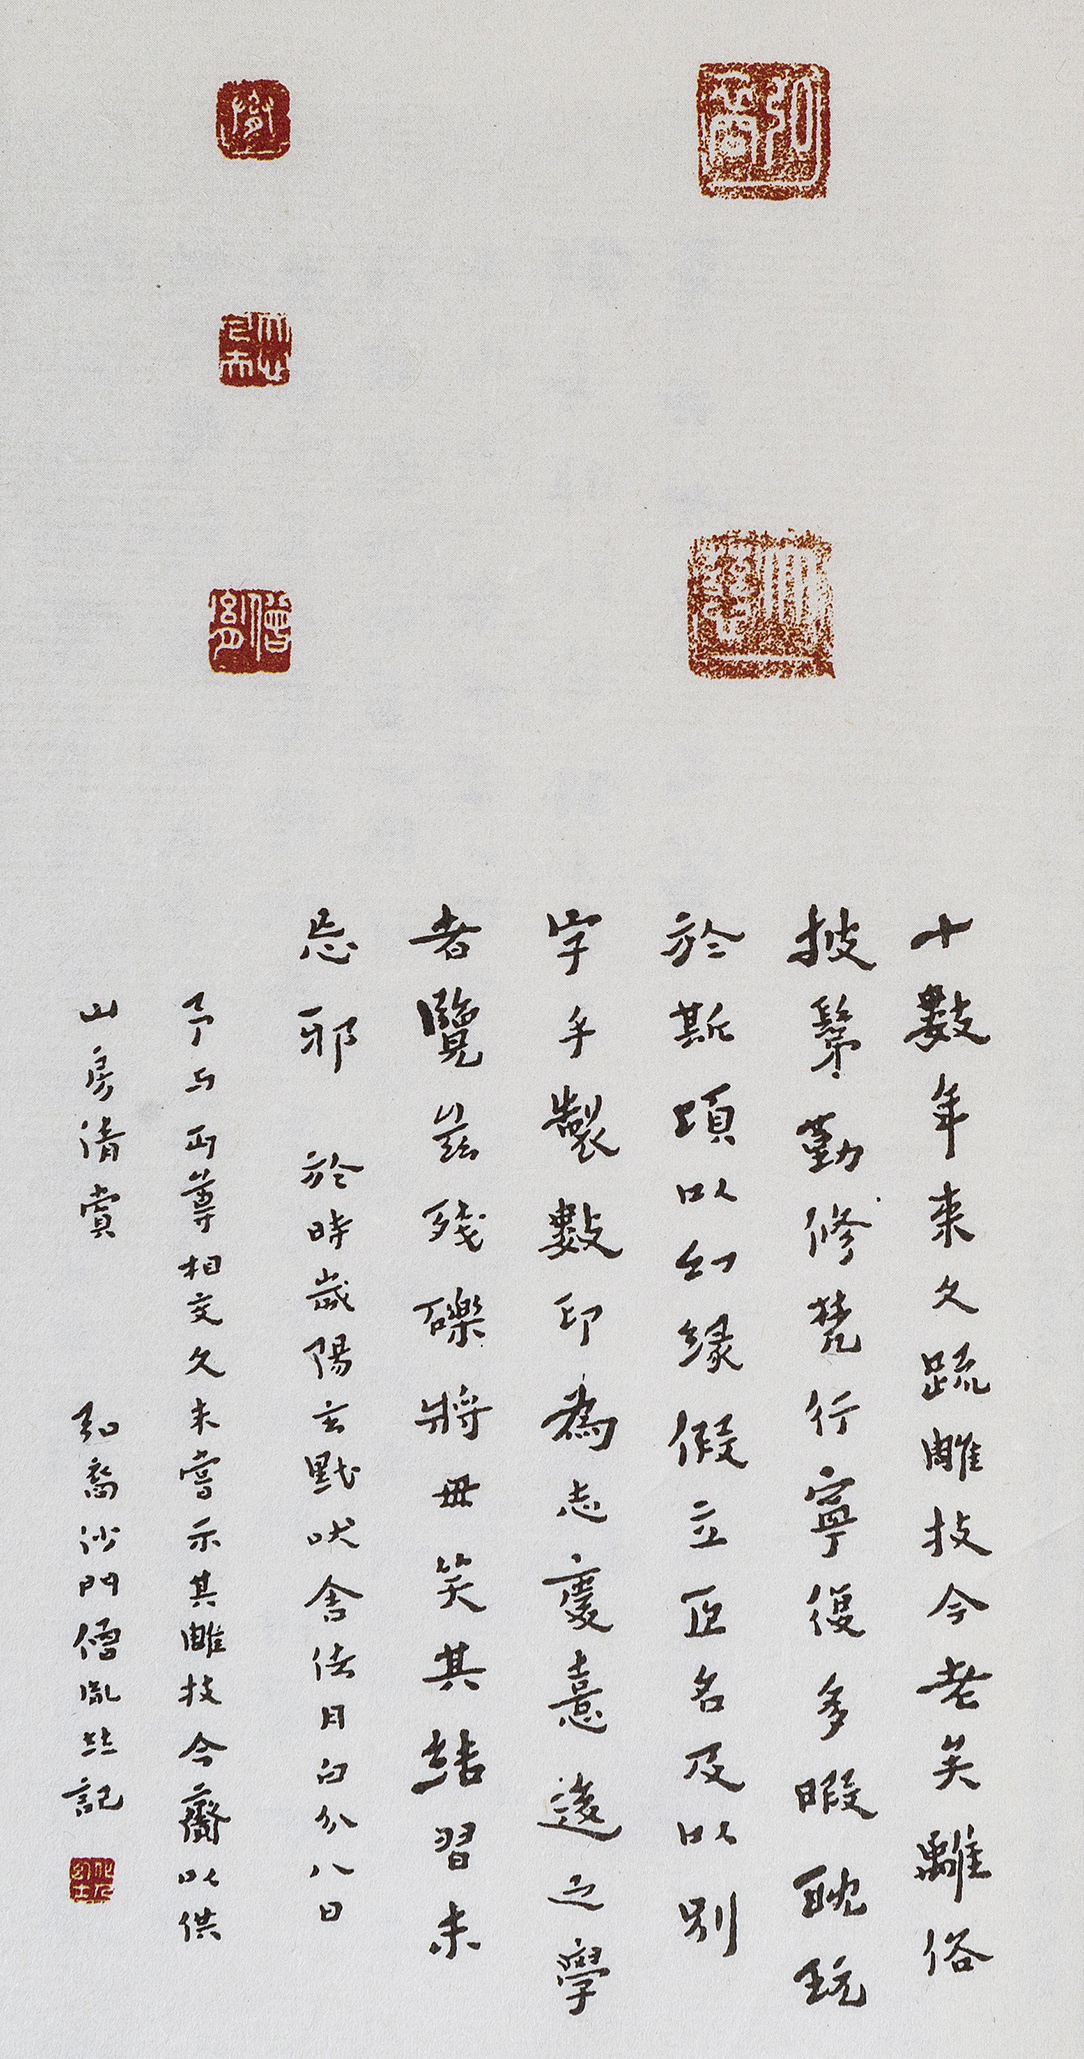 十數年來久疏雕技今老矣離俗
披鬀勤修梵行寧復多暇耽玩
於斯頃以幻緣假立臣名及以別
字手製數印為志慶憙後之學
者覽茲殘礫將毋笑其結習未
忘邪 於時歲陽玄黓吠舍佉月白分八日
予與丏尊相交久未嘗示其雕技今齎以供
山房清賞 弘裔沙門僧胤並記